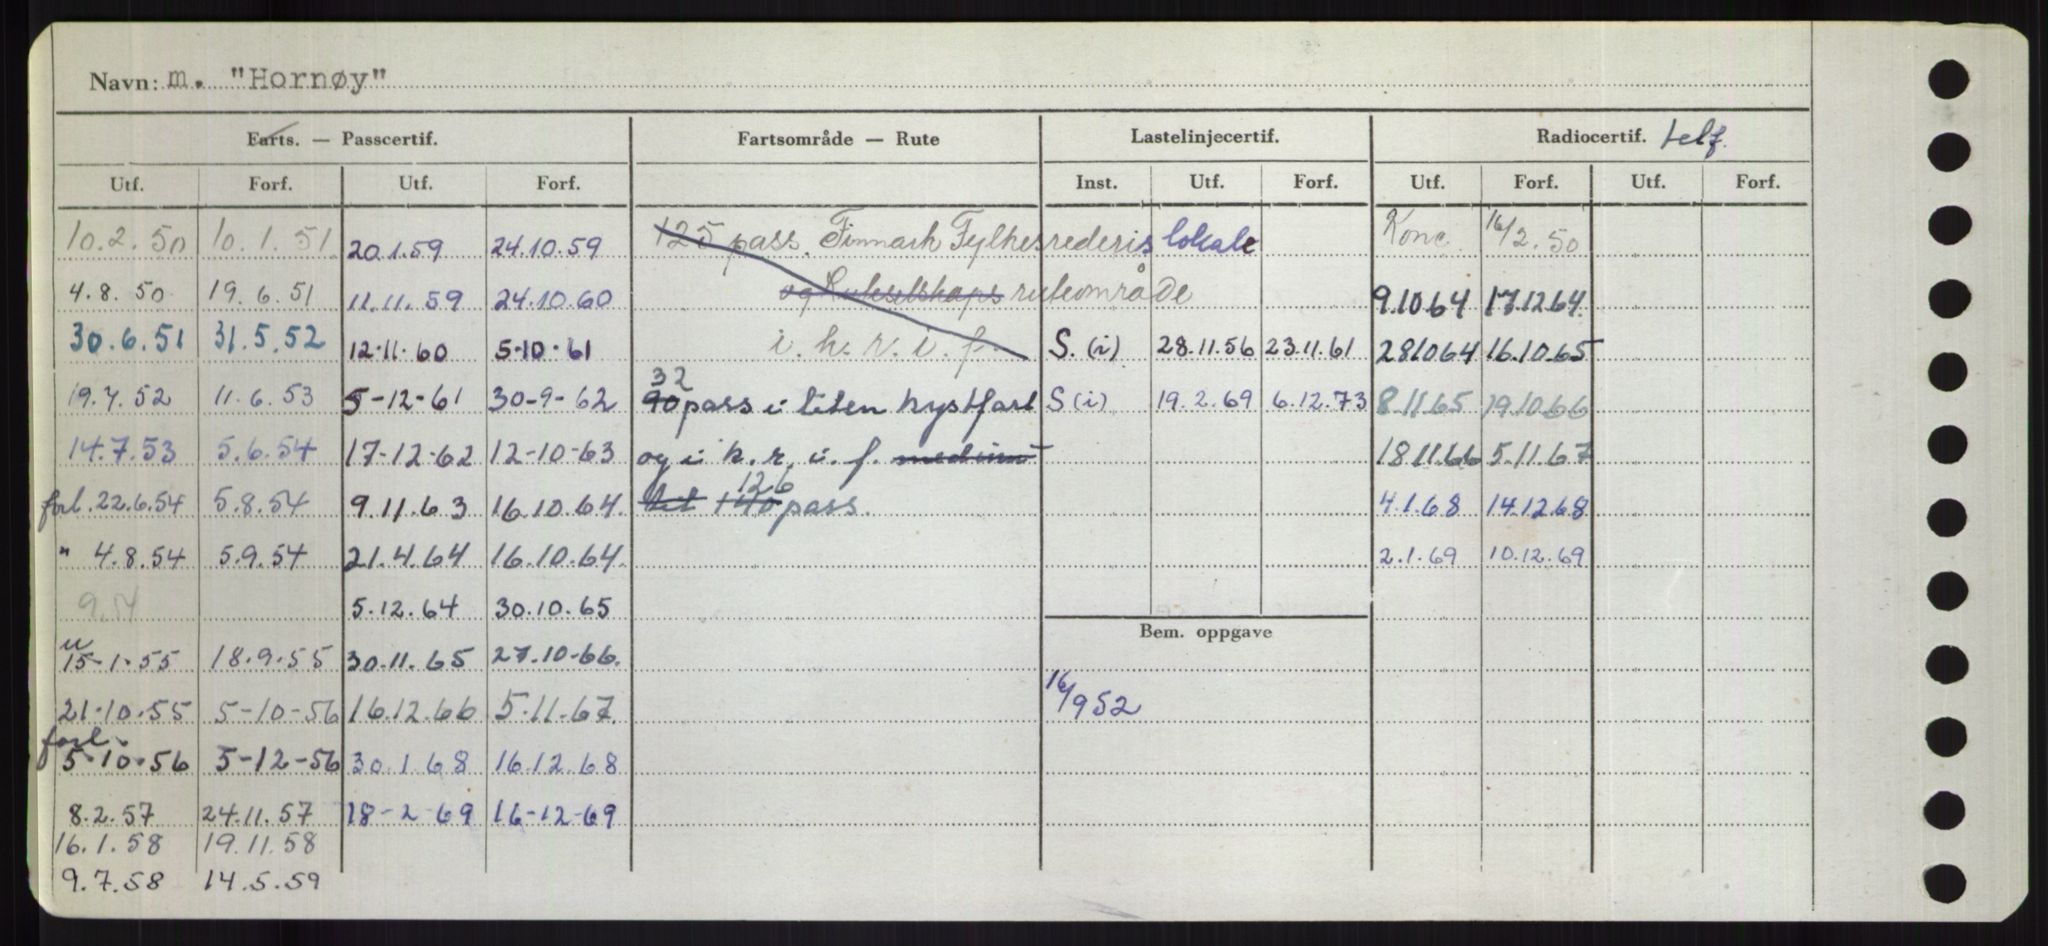 Navn: m. "Hornøy"
Farts. — Passcertif. Fartsområde — Rute Lastelinjecertif. Radiocertif. telf.
Utf. Forf. Utf. Forf. Inst. Utf. Forf. Utf. Forf. Utf. Forf.
10.2.50 10.1.51. 20.1.59 24.10.59 125 pass. Finmark Fylkesrederis lokale Konc. 16/2.50
4.8.50 19.6.51 11.11.59 24.10.60 og Ruteselskaps ruteområde 9.10 64 17.12 64
30.6.51 31.5.52 12-11-60 5-10-61 i. k. r. i. f. S. (i) 28.11.56 23.11.61 28 10 64 16.10.65
32
19.7.52 11.6.53 5-12-61 30-9-62 90 pass i liten kystfart S (i) 19.2.69 6.12.73 8.11 65 19.10 66
14.7.53 5.6.54 17-12-62 12-10-63 og i k. r. i. f. 18 11.66 5.11.67
126
forl. 22.6.54 5.8.54 9.11.63 16.10.64. 140 pass. 4.1.68 14.12.68
" 4.8.54 5.9.54 21.4.64 16.10.64. 2.1.69 10.12.69
9.54 5.12.64 30.10.65
Bem. oppgave
15-1-55 18.9.55 30.11.65 27.10-66.
21-10-55 5-10-56 16.12.66 5.11.67. 16/9 52
forl.
5-10-56 5-12-56 30.1.68 16.12.68
8.2.57 24.11.57 18-2-69 16-12-69
16.1.58 19.11.58
9.7.58 14.5.59